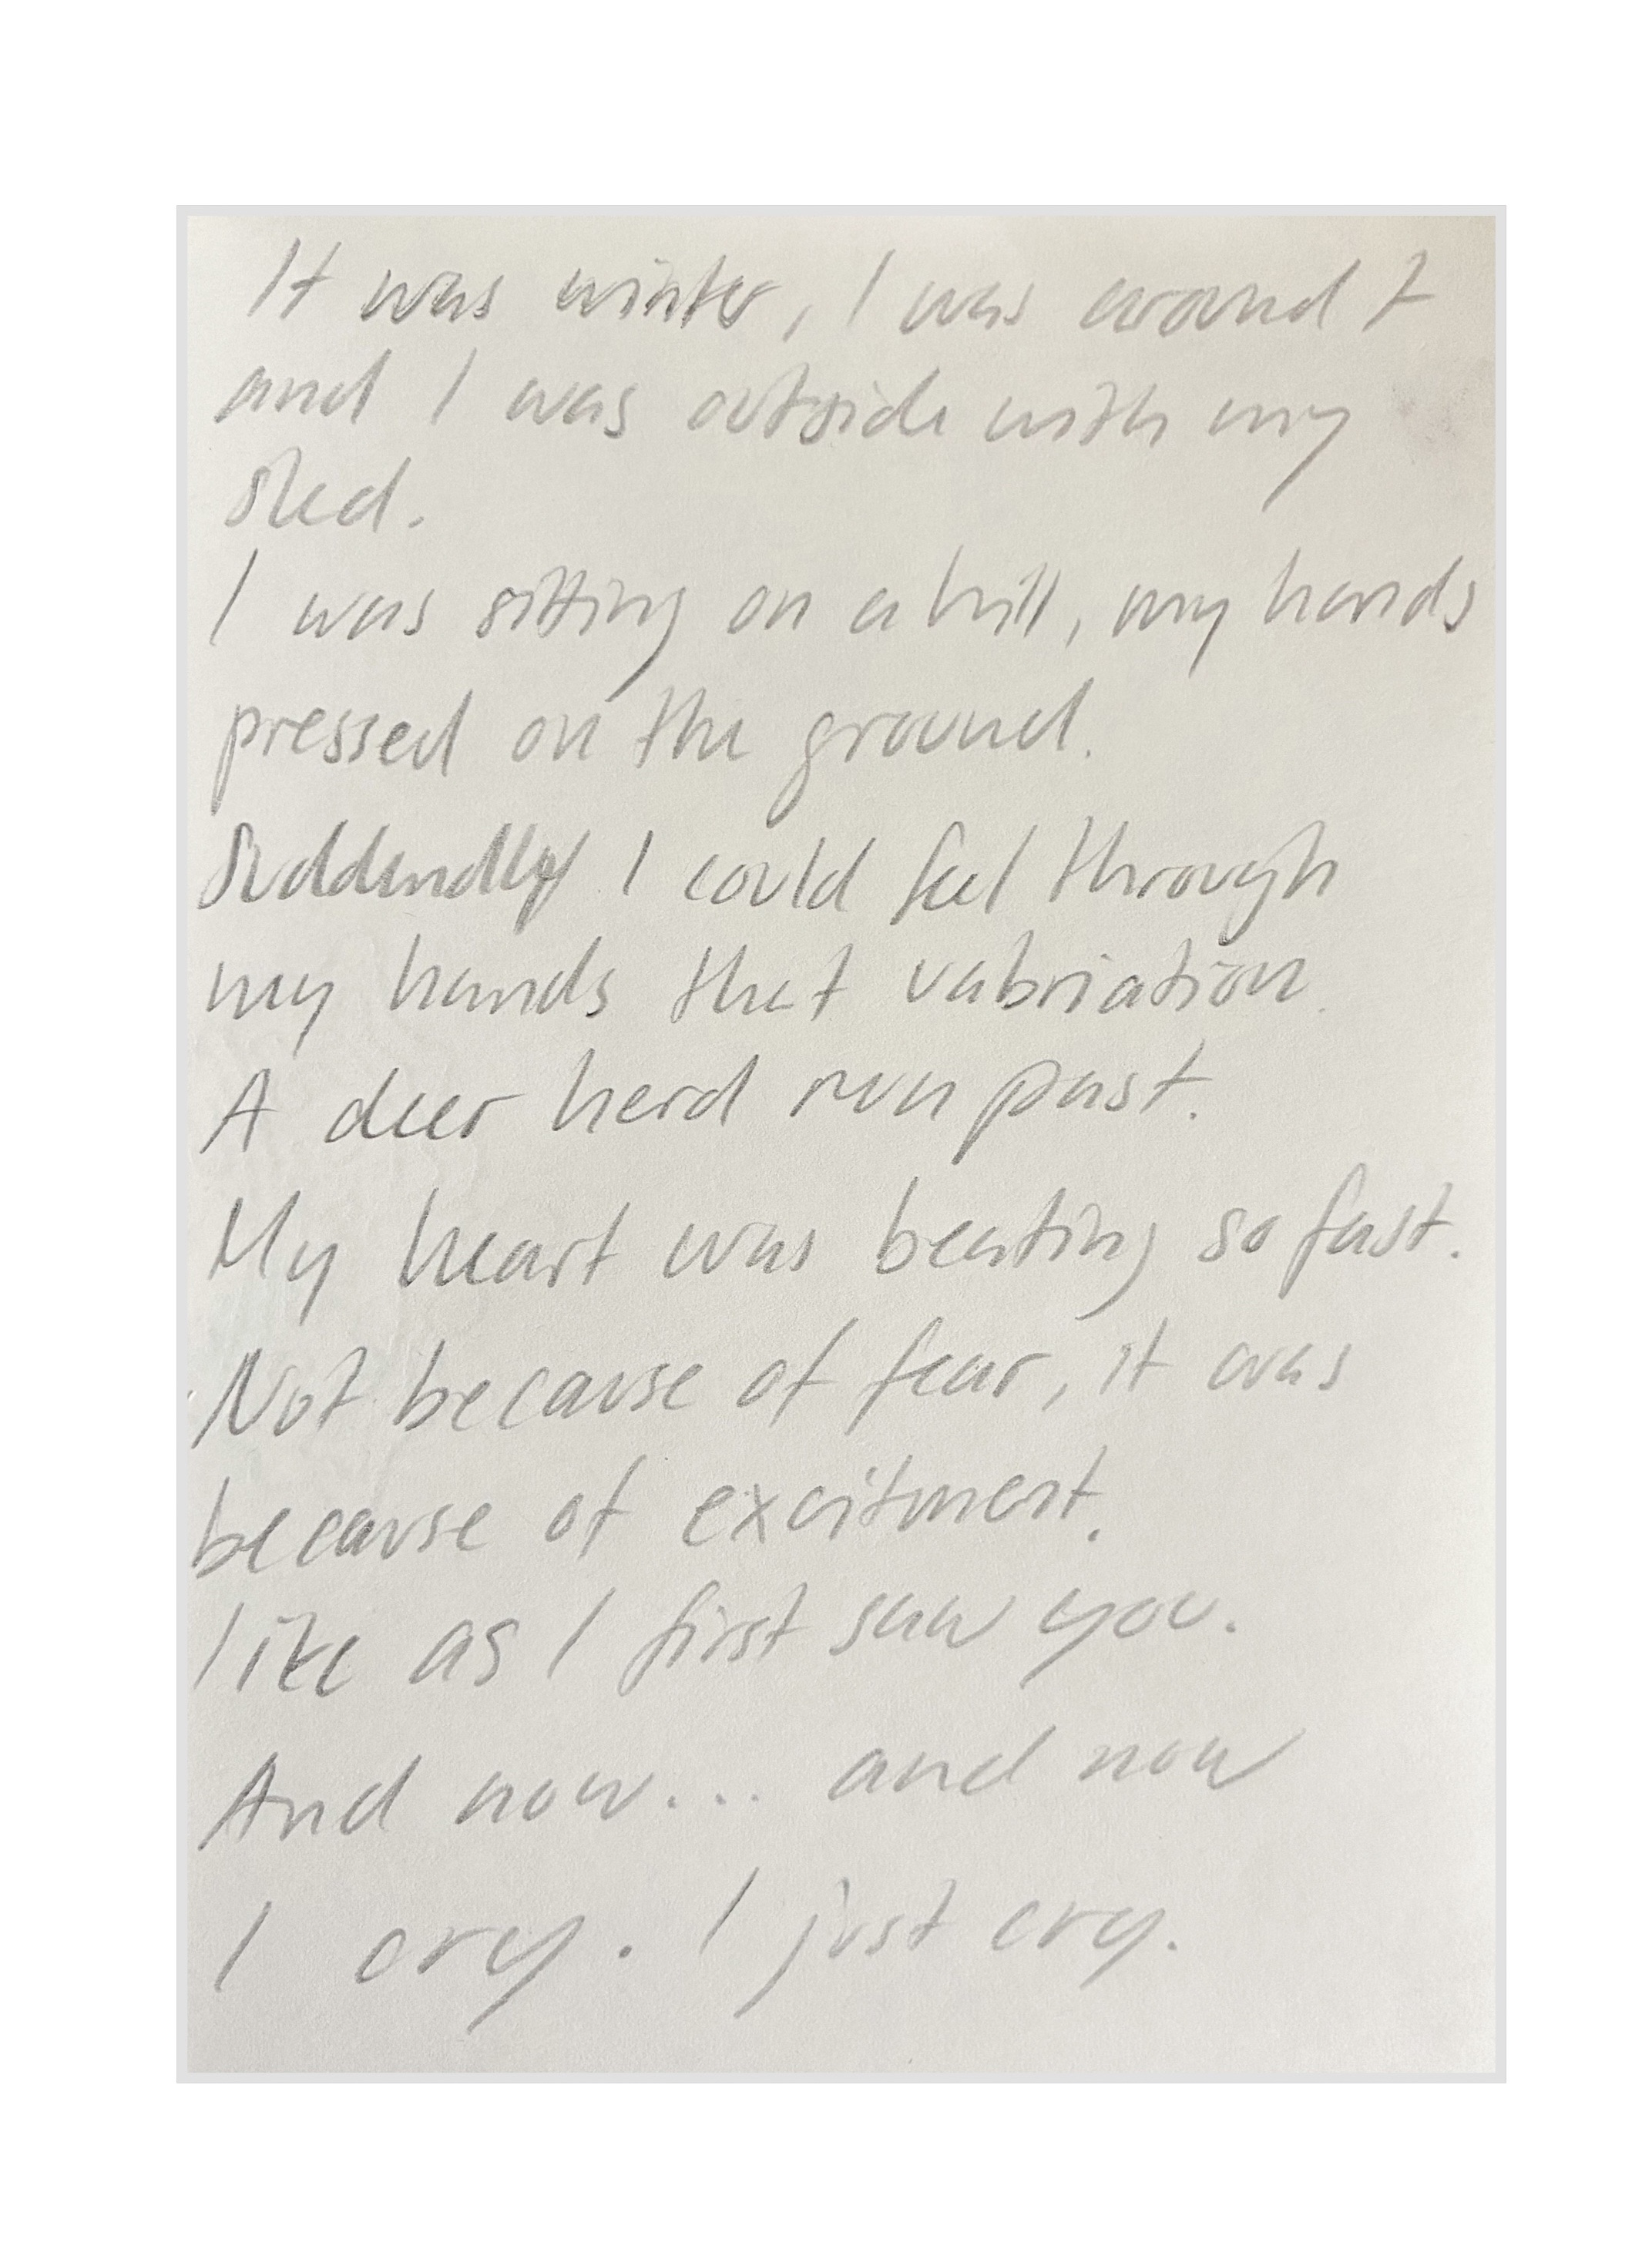 It was winter, I was around 7
and I was outside with my
sled.
I was sitting on a hill, my hands
pressed on the ground.
Suddendly I could feel through
my hands that vabriation.
A deer herd run past.
My heart was beating so fast.
Not because of fear, it was
because of excitment.
like as I first saw you.
And now... and now
I cry. I just cry.